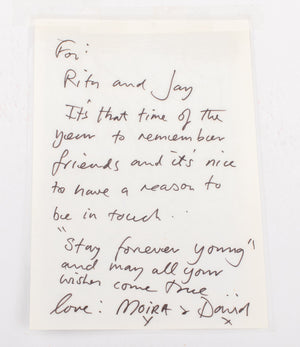 For:
Rita and Jay
It's that time of the
year to remember
friends and it's nice
to have a reason to
be in touch..
"Stay forever young"
and may all your
wishes come true...
love: MOIRA & David
x x